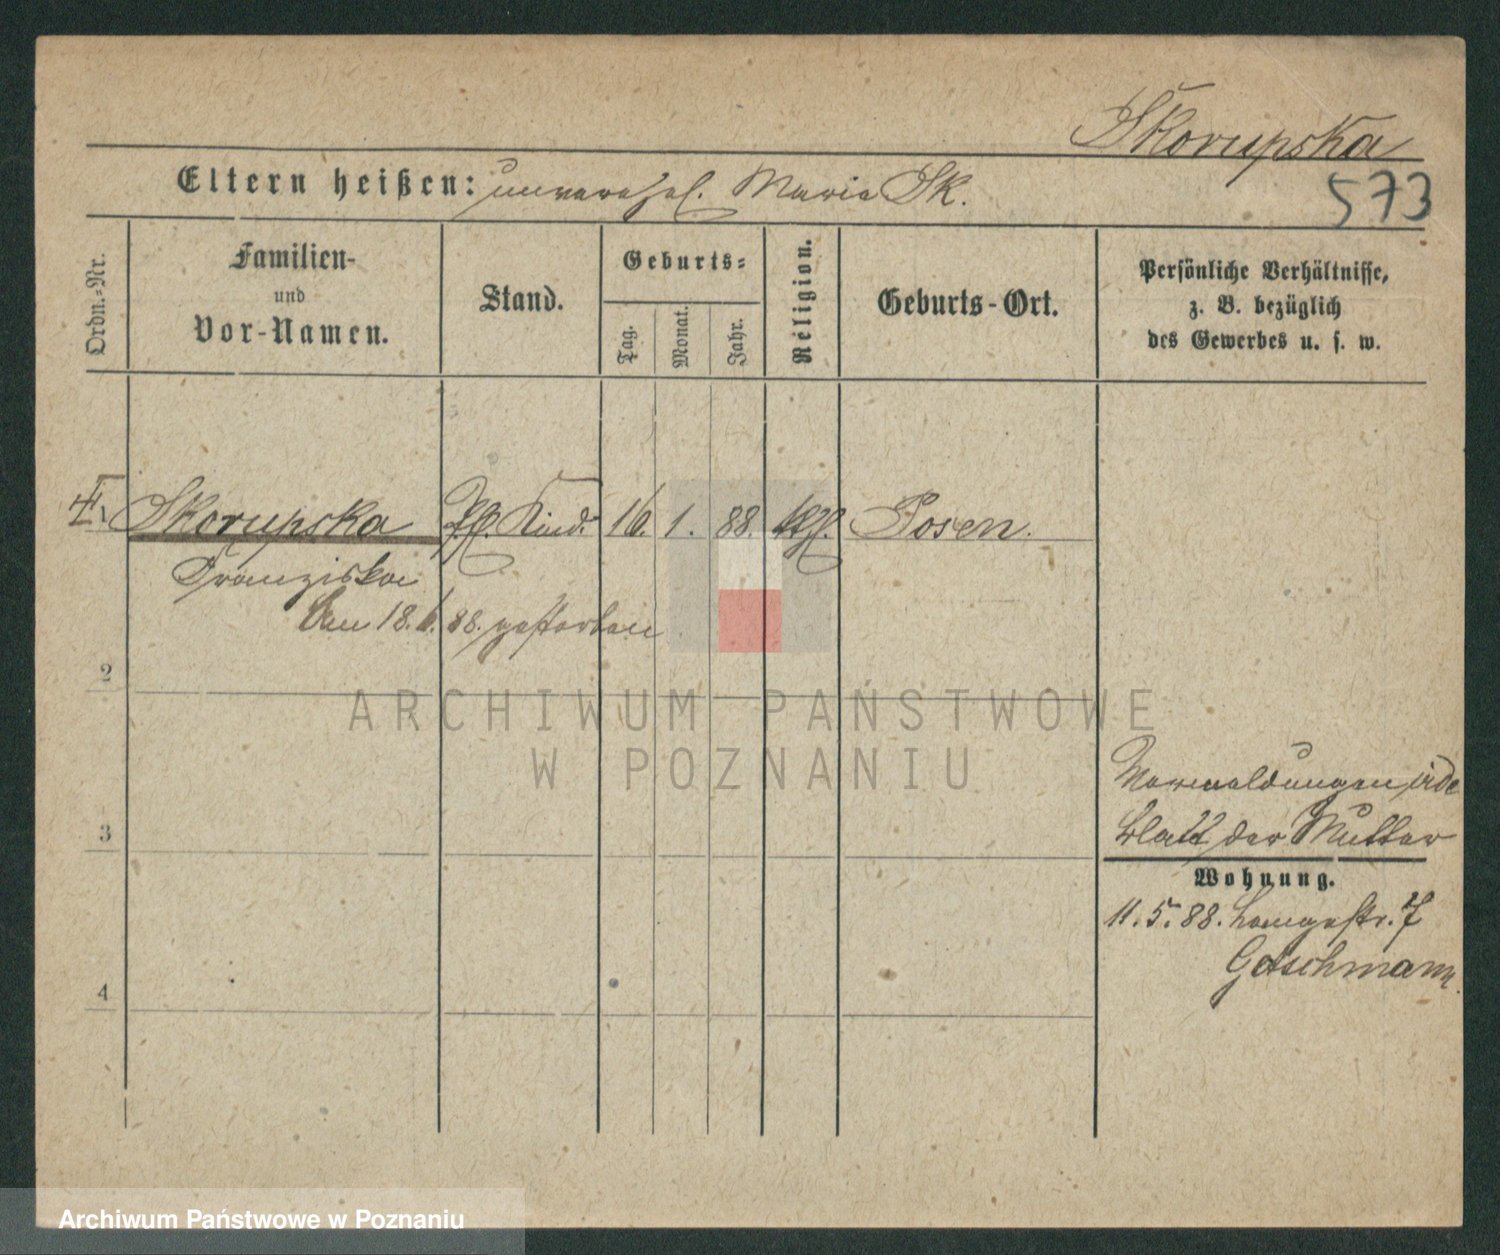 Skorupska
Eltern heißen: unverehel. Maria Sk.
573
Ordn.-Nr.
Familien-
und
Vor-Namen.
Stand.
Geburts-
Tag.
Monat.
Jahr.
Religion.
Geburts-Ort.
Persönliche Verhältnisse,
z. B. bezüglich
des Gewerbes u. s. w.
Skorupska Kind. 16. 1. 88. kth. Posen.
Franziska
Am 18. 6. 88. gestorben
2
ARCHIWUM PAŃSTWOWE
W POZNANIU
3
Blatt der Mutter
Wohnung.
11. 5. 88. Langestr. 7
4
Archiwum Państwowe w Poznaniu